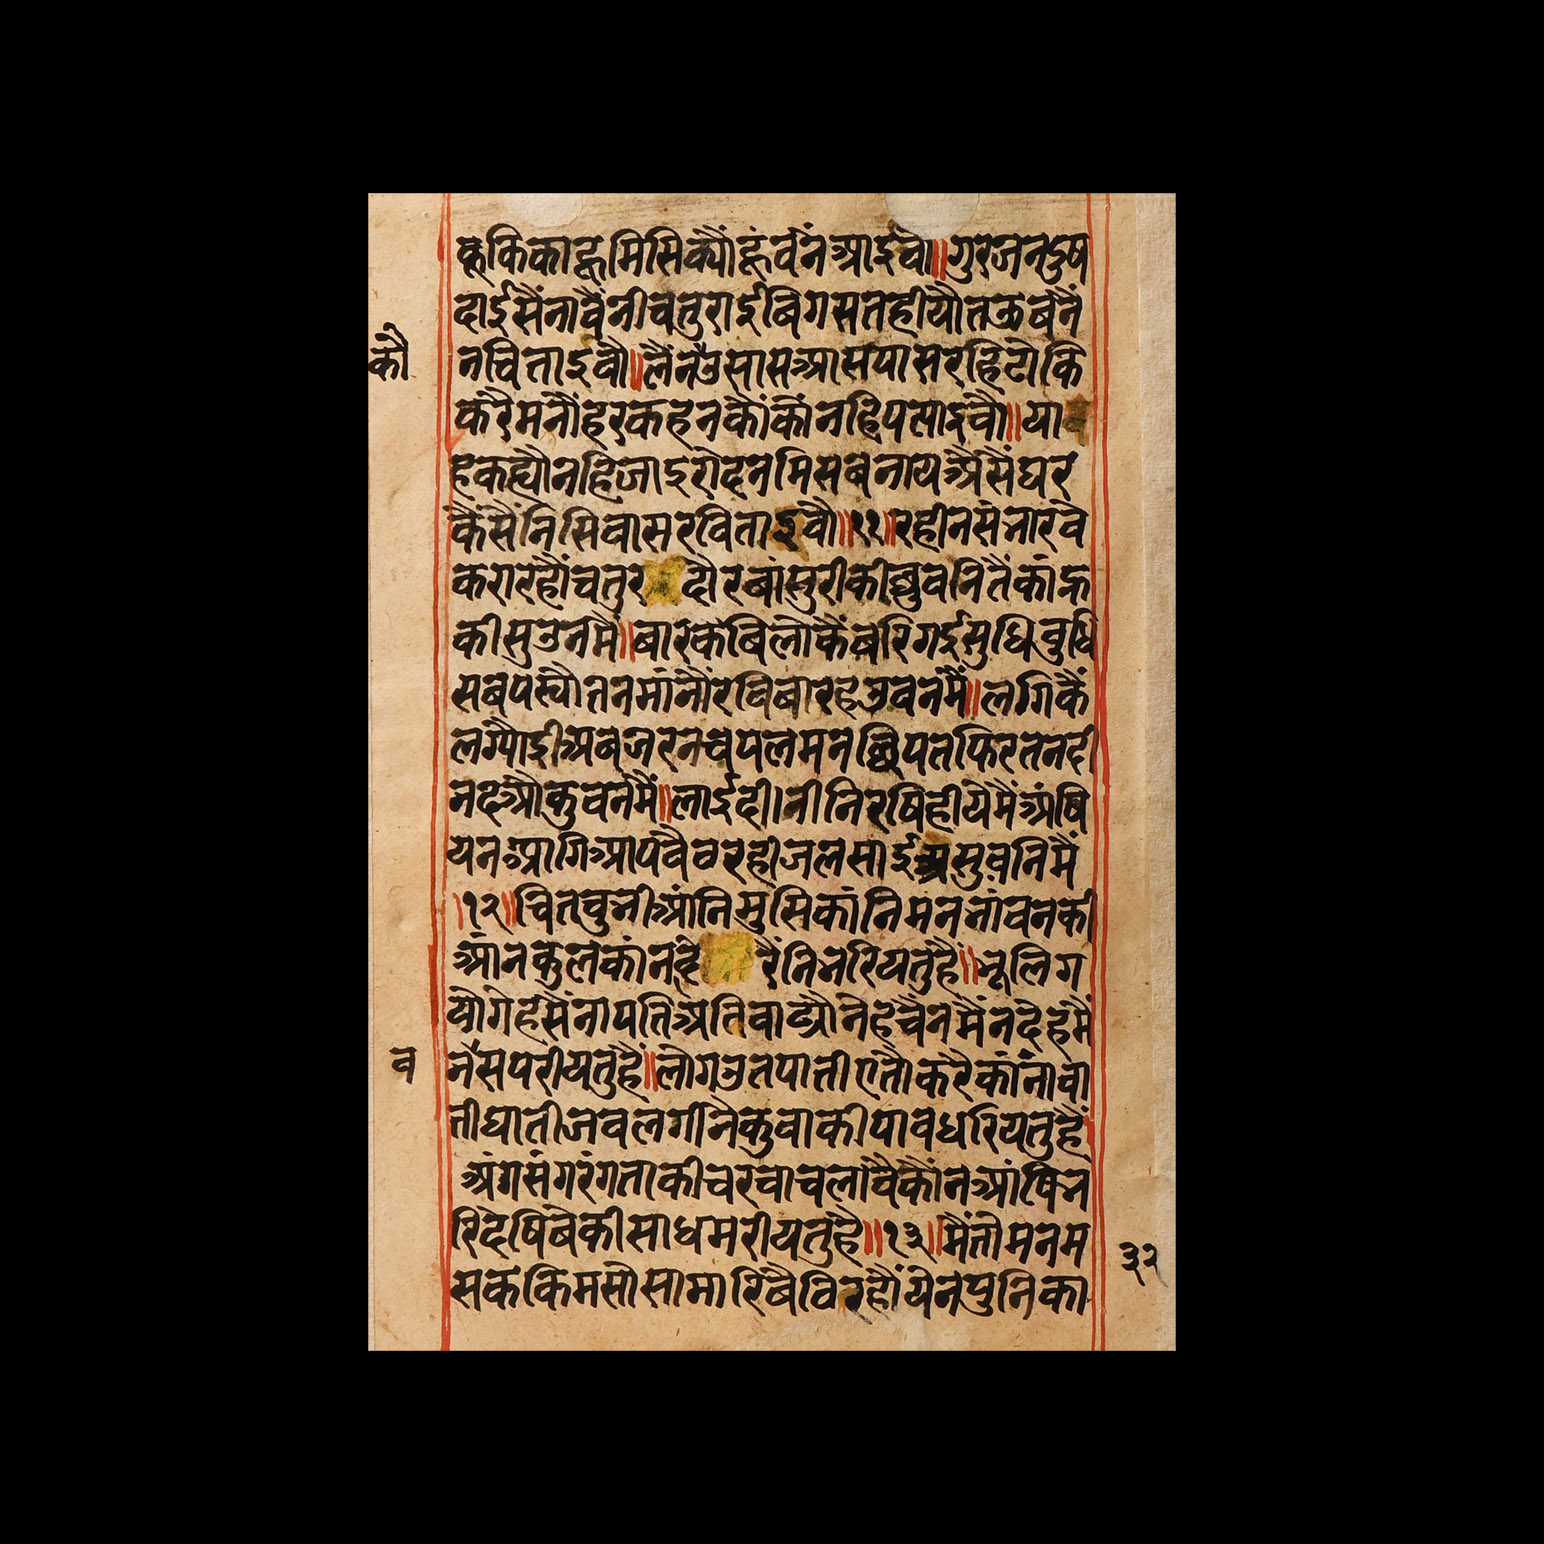 कूकिकाहूमिसिक्यौंहूंवंनआइवौ॥गुरजनदुष
दाईसैंनावैंनीचतुराईबिगसतहीयौतऊबंनैं
कौ
नचिताइवौ॥लैंनउसासआसपासरहिटोकि
करैमनौंहरकहनकौंकौंनहिपत्याइवौ॥या
हकह्यौनहिजाइरोदनमिसबनायअैसैंघर
कैसैंनिसिवासरविताइवौ॥११॥रहीनसंनारंवै
करारहौंचतुर दौरबांसुरीकीधुवनितैंकांह्न
कीसुउनमैं॥बारकबिलोकैंबरिगईसुधिबुधि
सबपर्यौतनमांनौंरबिबारहउवनंमैं॥लगिकैं
लग्यौईअबजरनचपलमनछिपतफिरतनदी
नदऔकुवनमैं॥लाईदौंनीनिरषिहीयेमैंअंषि
यनआगिआपंवैवरहीजलसाईअसुवनिमैं
॥१२॥चितचुनीआंनिमुसिकांनिमननांवनकी
आंनकुलकांनदै रैंनिनरियतुहै॥भूलिग
योगेहसैंनापतिअतिवाढ्यौनेहचैंनमैंनदेहमैं
व
नंसपरीयतुहै॥लोगउतपातीएतौकरैकांनांवा
तीघातीजवलगींनेकुवाकीपावधरियतुहै
अंगसंगरंगताकीचरचाचलावैकौंनआंषिन
रिदेषिबेकीसाधमरीयतुहै॥१३॥मैंतौमनम
३२
सककिमसोसामारिबैविरहौंयेनपुनिका